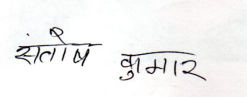 संतोष कुमार